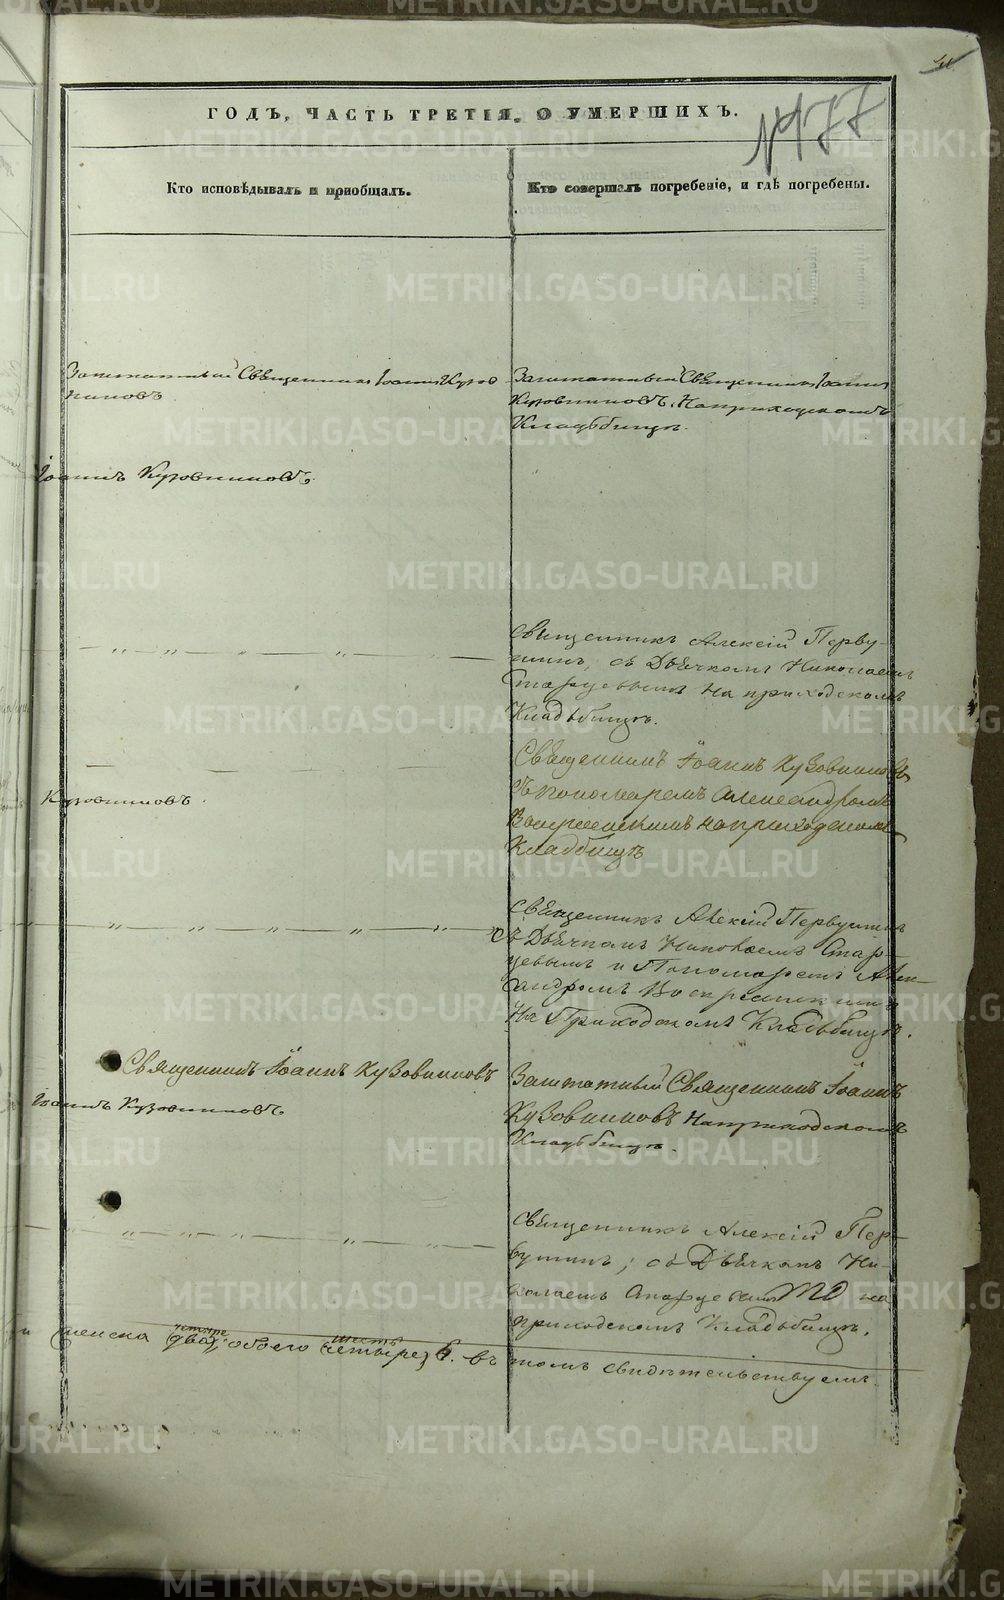 ГОДЪ, ЧАСТЬ ТРЕТІЯ, О УМЕРШИХЪ.
№ 177
Кто исповѣдывалъ и приобщалъ.
Кто совершалъ погребеніе, и гдѣ погребены.
Заштатный Священникъ Іоаннъ Кузов
никовъ
Іоаннъ Кузовниковъ.
Заштатный Священникъ Іоаннъ
Кузовниковъ. На приходскомъ
Кладбищѣ.
Священникъ Алексій Перву-
шинъ, съ Дьячкомъ Николаемъ
Старцевымъ на приходскомъ
Кладьбищѣ.
Кузовниковъ.
Священникъ Іоаннъ Кузовниковъ
съ пономаремъ Александромъ
Воскресенскимъ на приходскомъ
Кладбищѣ
Священникъ Алексій Первушинъ
съ Дьячкомъ Николаемъ Стар-
цевымъ и Пономаремъ Алек-
сандромъ Воскресенскимъ
На Приходскомъ Кладьбищѣ.
Священникъ Іоаннъ Кузовниковъ
Іоаннъ Кузовниковъ
Заштатный Священникъ Іоаннъ
Кузовниковъ На приходскомъ
Кладьбищѣ.
Священникъ Алексій Пер-
вушинъ, съ Дьячкомъ Ни-
колаемъ Старцевымъ на
приходскомъ Кладьбищѣ.
четыре шесть
и женска два, обоего четыре, 6. въ томъ свидѣтельствуемъ
METRIKI.GASO-URAL.RU